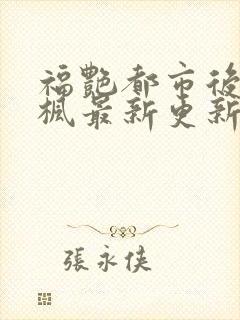 福艷都市後
楓最新更新
張永侠